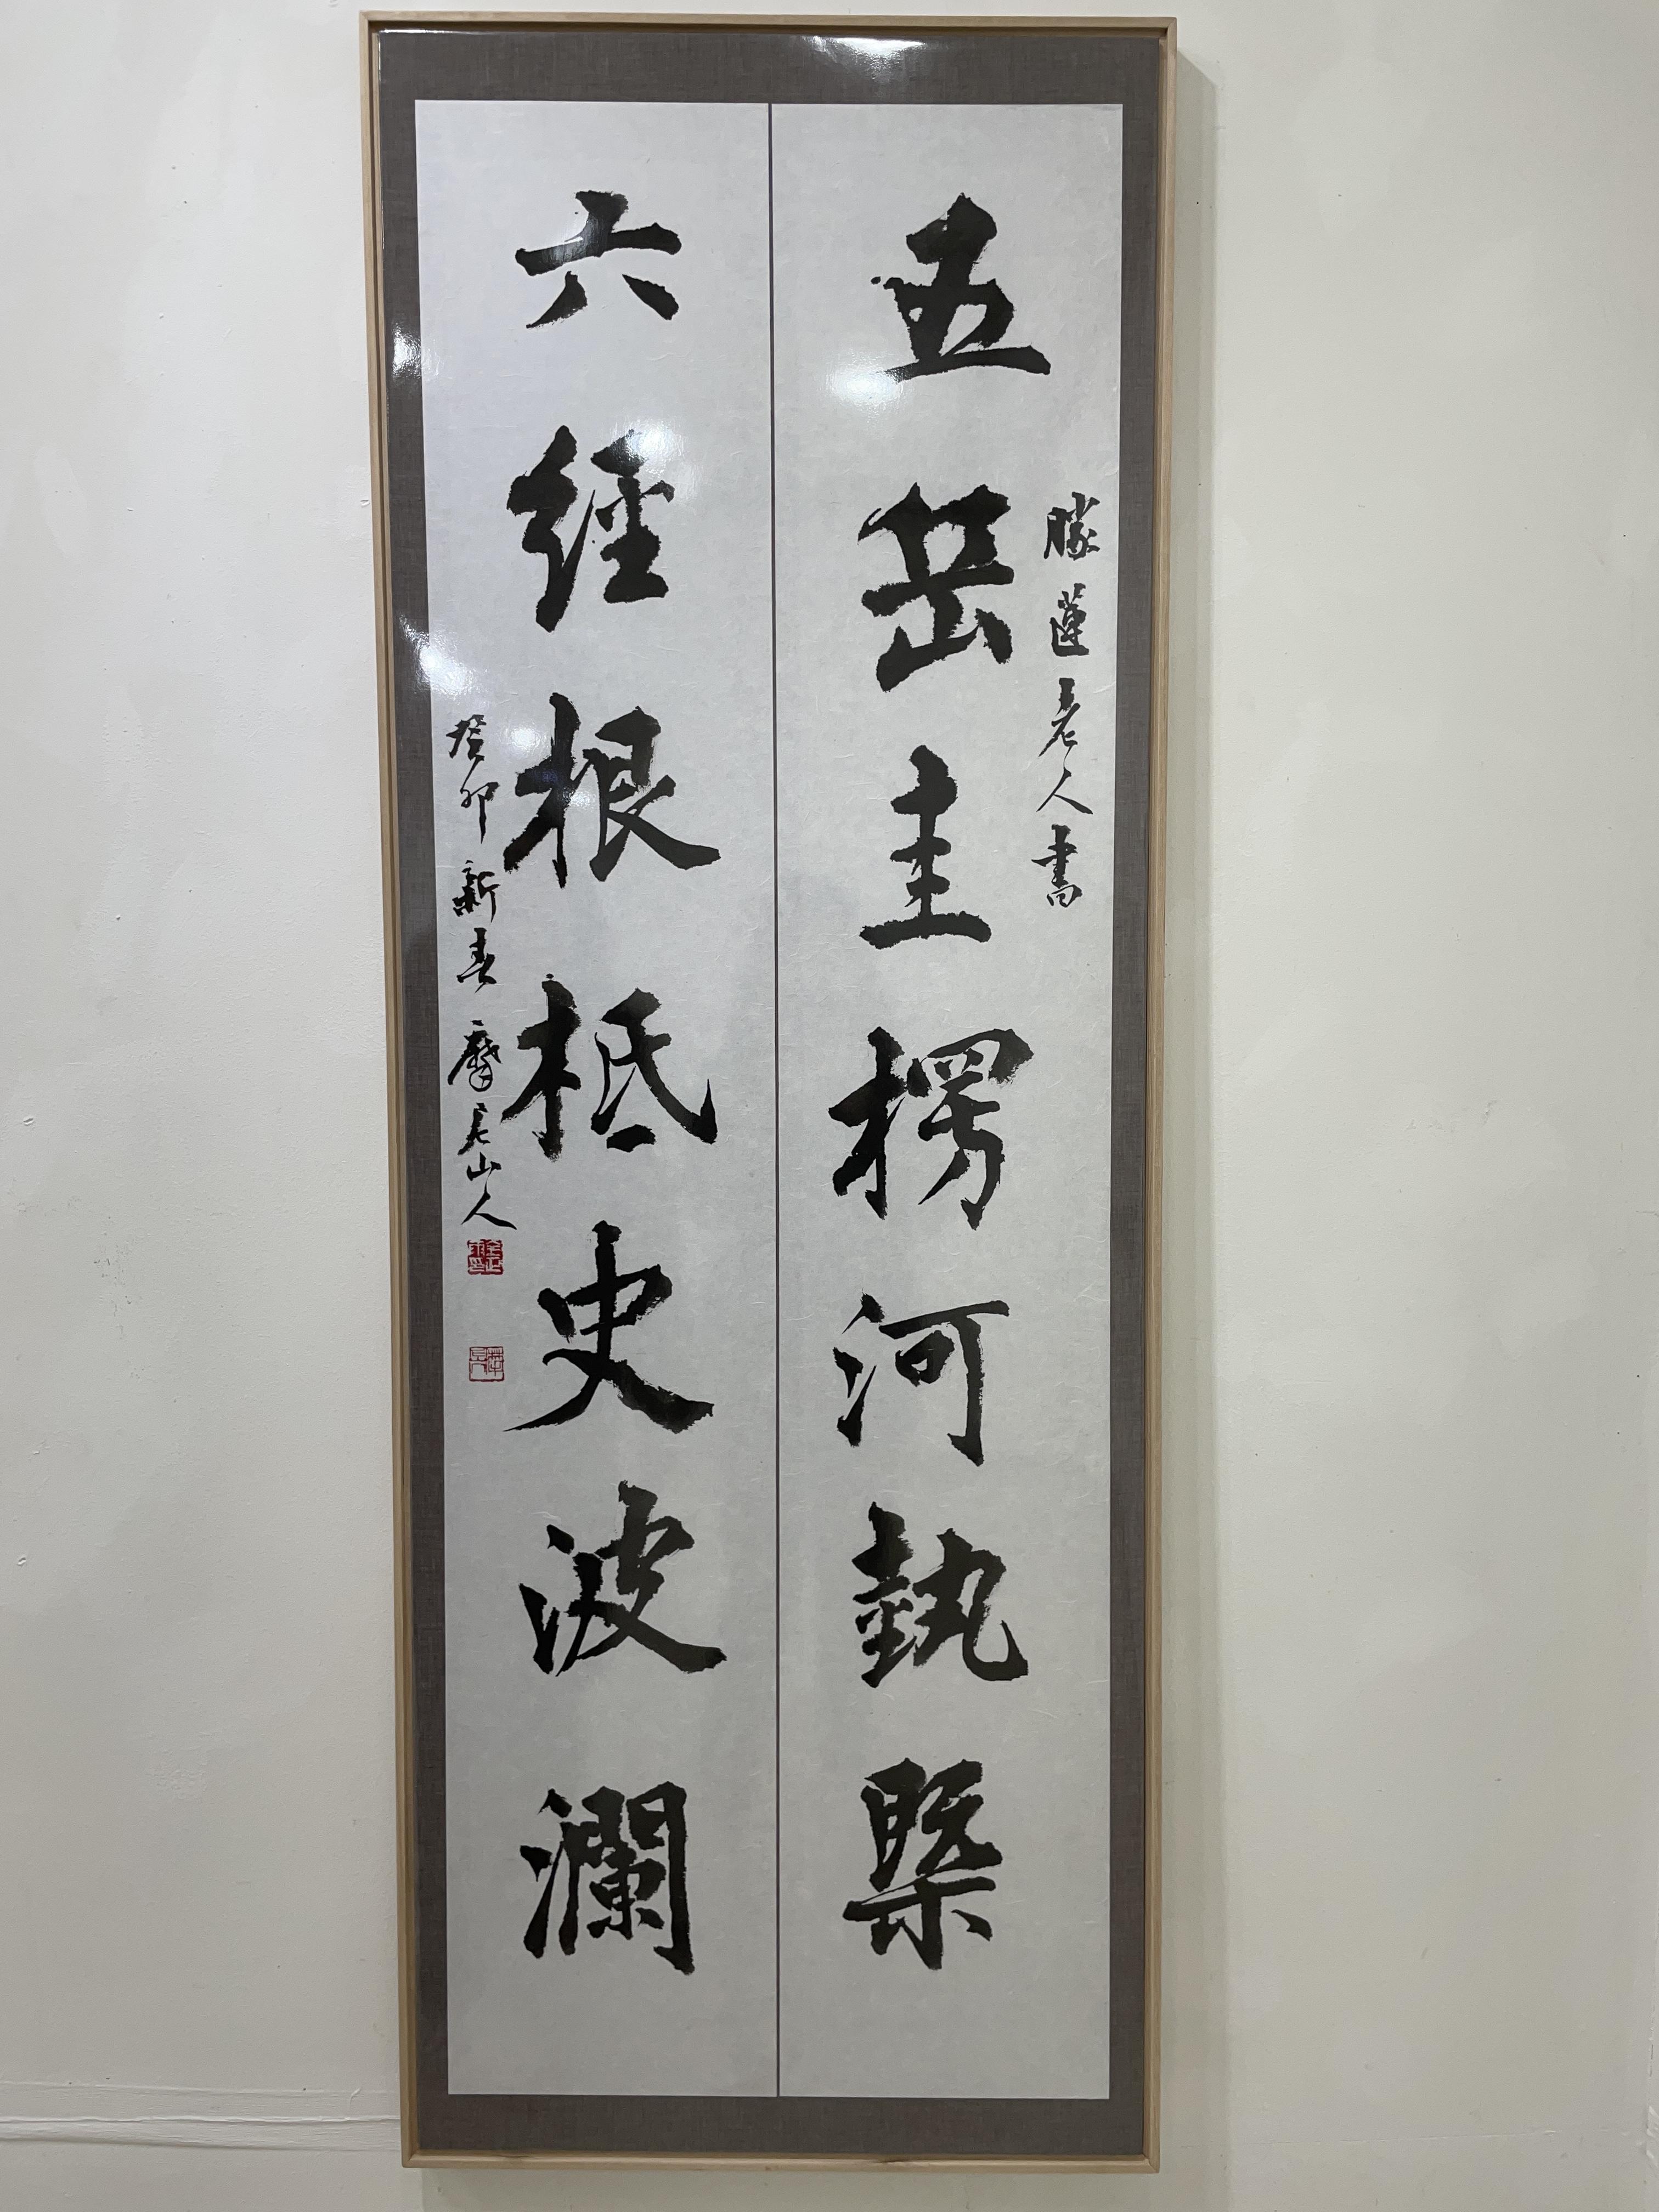 勝蓮老人書
五岳圭楞河埶槩
六經根柢史波瀾
癸卯新春摩尼山人